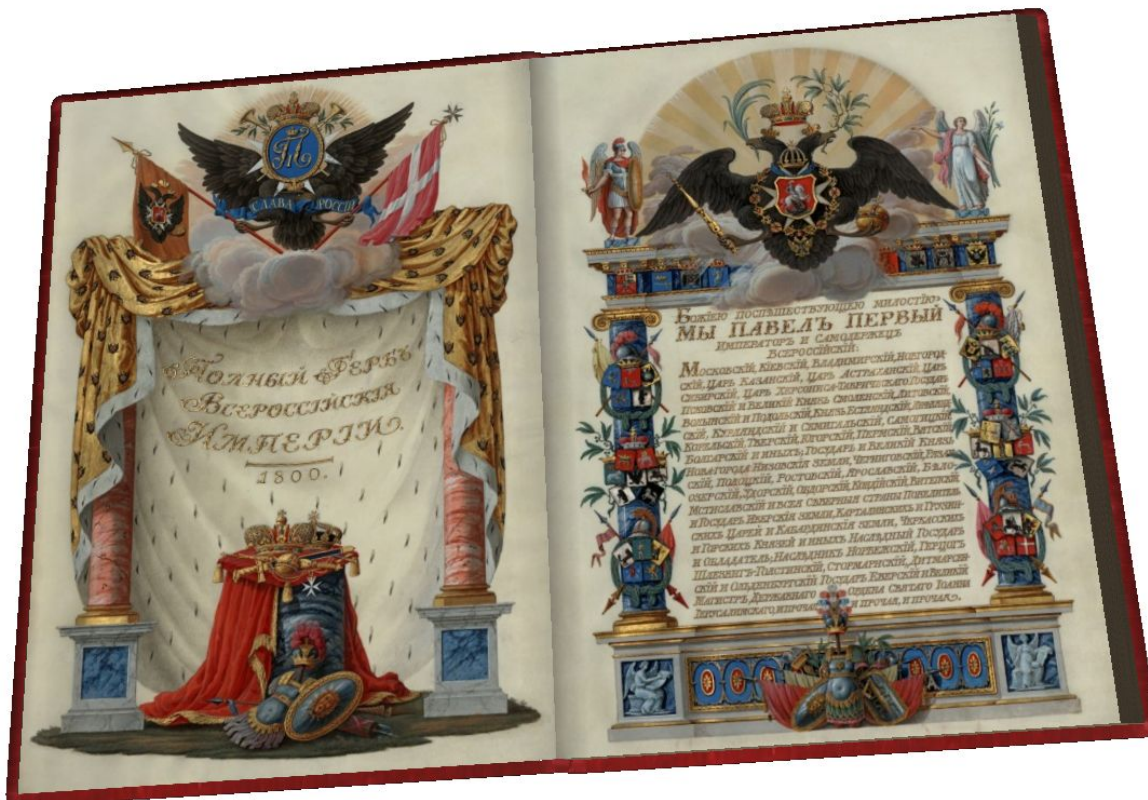 СЛАВА РОССІИ
Полный Гербъ
Всероссійскія
Имперіи.
1800.
Божіею поспѣшествующею милостію
МЫ ПАВЕЛЪ ПЕРВЫЙ
Императоръ и Самодержецъ
Всероссійскій:
Московскій, Кіевскій, Владимирскій, Новгород-
скій, Царь Казанскій, Царь Астраханскій, Царь
Сибирскій, Царь Херсониса-Таврическаго, Государь
Псковскій и Великій Князь Смоленскій, Литовскій,
Волынскій и Подольскій, Князь Естляндскій, Лифлянд-
скій, Курляндскій и Семигальскій, Самогицкій,
Корельскій, Тверскій, Югорскій, Пермскій, Вятскій,
Болгарскій и иныхъ; Государь и Великій Князь
Новагорода Низовскія земли, Черниговскій, Рязан-
скій, Полоцкій, Ростовскій, Ярославскій, Бѣло-
озерскій, Удорскій, Обдорскій, Кондійскій, Витепскій,
Мстиславскій и всея Сѣверныя страны Повелитель
и Государь Иверскія земли, Карталинскихъ и Грузин-
скихъ Царей и Кабардинскія земли, Черкасскихъ
и Горскихъ Князей и иныхъ Наслѣдный Государь
и Обладатель; Наслѣдникъ Норвежскій, Герцогъ
Шлезвигъ-Голстинскій, Стормарнскій, Дитмарсен-
скій и Ольденбургскій, Государь Еверскій и Великій
Магистръ Державнаго Ордена Святаго Іоанна
Іерусалимскаго, и прочая, и прочая, и прочая.